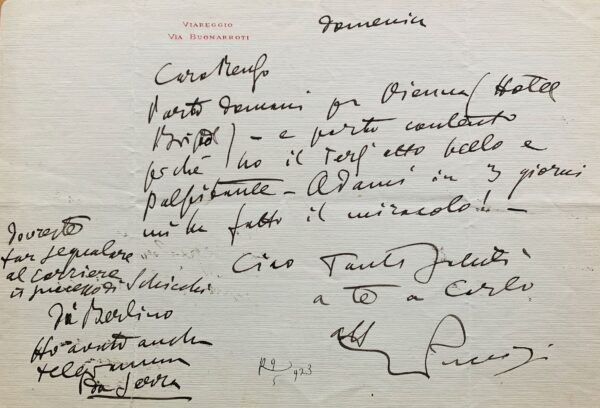 VIAREGGIO
VIA BUONARROTI
Domenica
Caro Renzo
Parto domani per Vienna (Hotel
Bristol) – e parto contento
perché ho il terz'atto bello e
palpitante – Adami in 3 giorni
mi ha fatto il miracolo! –
Ciao Tanti saluti
a te a Carlo
aff
Puccini
Dovreste
far segnalare
al corriere
il successo di Schicchi
Di Berlino
Ho avuto anche
telegramma
923